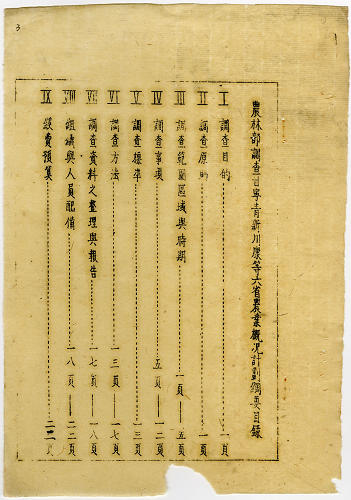 農林部調查甘寧青新川康等六省農業概况計劃綱要目錄
I 調查目的 一頁
II 調查原則 一頁
III 調查範圍區域與時期 一頁——五頁
IV 調查事項 五頁——一二頁
V 調查標準 一三頁
VI 調查方法 一三頁——一七頁
VII 調查資料之整理與報告 一七頁——一八頁
VIII 組織與人員配備 一八頁——二二頁
IX 經費預算 二二頁
3